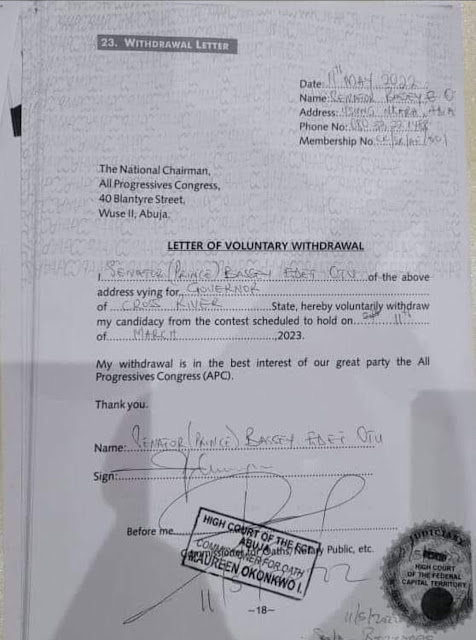 23. WITHDRAWAL LETTER
Date: 11th MAY 2022
Name: SENATOR BASSEY E. O
Address:
Phone No:
Membership No.
The National Chairman,
All Progressives Congress,
40 Blantyre Street,
Wuse II, Abuja.
LETTER OF VOLUNTARY WITHDRAWAL
I, SENATOR (PRINCE) BASSEY EDET OTU of the above
address vying for GOVERNOR
of CROSS RIVER State, hereby voluntarily withdraw
my candidacy from the contest scheduled to hold on 11th
of MARCH ,2023.
My withdrawal is in the best interest of our great party the All
Progressives Congress (APC).
Thank you.
Name: SENATOR (PRINCE) BASSEY EDET OTU
Sign:
Before me
HIGH COURT OF THE FCT
ABUJA
Commissioner for Oaths/Notary Public, etc.
COMMISSIONER FOR OATH
MAUREEN OKONKWO I.
JUDICIARY
HIGH COURT
OF THE FEDERAL
CAPITAL TERRITORY
~18~